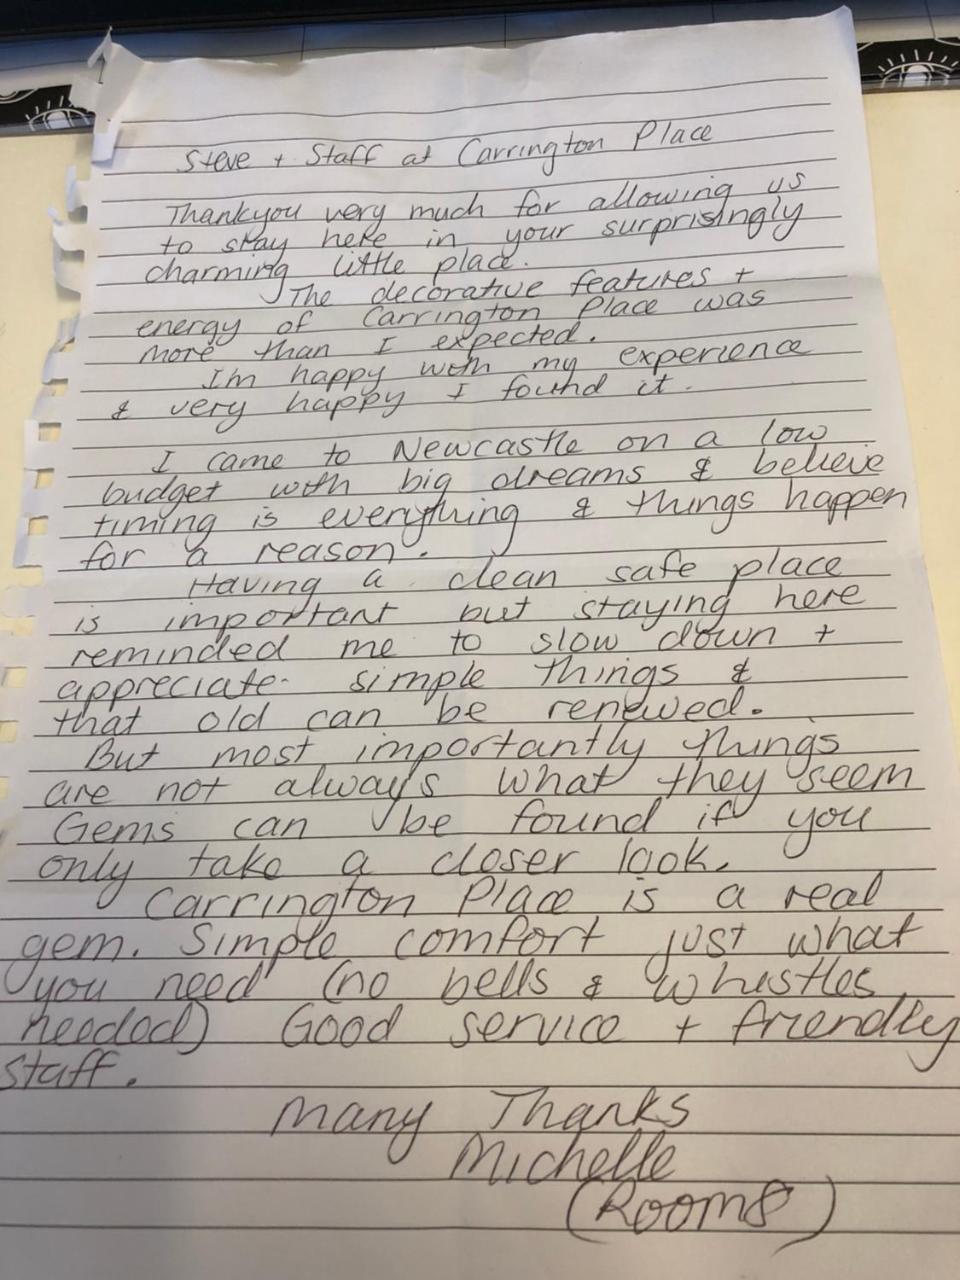 Steve + Staff at Carrington Place
Thankyou very much for allowing us
to stay here in your surprisingly
charming little place.
The decorative features +
energy of Carrington Place was
more than I expected.
I'm happy with my experience
& very happy I found it.
I came to Newcastle on a low
budget with big dreams & believe
timing is everything & things happen
for a reason.
Having a clean safe place
is important but staying here
reminded me to slow down +
appreciate simple things &
that old can be renewed.
But most importantly things
are not always what they seem
Gems can be found if you
only take a closer look.
Carrington Place is a real
gem. Simple comfort just what
you need (no bells & whistles
needed) Good service + friendly
staff.
Many Thanks
Michelle
(Room 8)